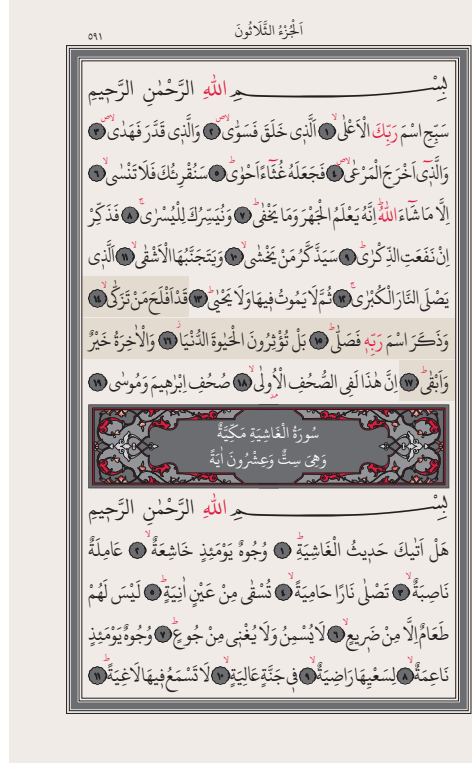 اَلْجُزْءُ الثَّلَاثُونَ
٥٩١
بِسْمِ اللّٰهِ الرَّحْمٰنِ الرَّحٖيمِ
سَبِّحِ اسْمَ رَبِّكَ الْاَعْلٰىۙ ﴿١﴾ اَلَّذٖى خَلَقَ فَسَوّٰىۙ ﴿٢﴾ وَالَّذٖى قَدَّرَ فَهَدٰىۙ ﴿٣﴾
وَالَّذٖٓى اَخْرَجَ الْمَرْعٰىۙ ﴿٤﴾ فَجَعَلَهُ غُثَٓاءً اَحْوٰىۜ ﴿٥﴾ سَنُقْرِئُكَ فَلَا تَنْسٰىۙ ﴿٦﴾
اِلَّا مَا شَٓاءَ اللّٰهُۜ اِنَّهُ يَعْلَمُ الْجَهْرَ وَمَا يَخْفٰىۜ ﴿٧﴾ وَنُيَسِّرُكَ لِلْيُسْرٰىۚ ﴿٨﴾ فَذَكِّرْ
اِنْ نَفَعَتِ الذِّكْرٰىۜ ﴿٩﴾ سَيَذَّكَّرُ مَنْ يَخْشٰىۙ ﴿١٠﴾ وَيَتَجَنَّبُهَا الْاَشْقٰىۙ ﴿١١﴾ اَلَّذٖى
يَصْلَى النَّارَ الْكُبْرٰىۚ ﴿١٢﴾ ثُمَّ لَا يَمُوتُ فٖيهَا وَلَا يَحْيٰىۜ ﴿١٣﴾ قَدْ اَفْلَحَ مَنْ تَزَكّٰىۙ ﴿١٤﴾
وَذَكَرَ اسْمَ رَبِّهٖ فَصَلّٰىۜ ﴿١٥﴾ بَلْ تُؤْثِرُونَ الْحَيٰوةَ الدُّنْيَاۘ ﴿١٦﴾ وَالْاٰخِرَةُ خَيْرٌ
وَاَبْقٰىۜ ﴿١٧﴾ اِنَّ هٰذَا لَفِى الصُّحُفِ الْاُو۫لٰىۙ ﴿١٨﴾ صُحُفِ اِبْرٰهٖيمَ وَمُوسٰى ﴿١٩﴾
سُورَةُ الْغَاشِيَةِ مَكِّيَّةٌ
وَهِىَ سِتٌّ وَعِشْرُونَ اٰيَةً
بِسْمِ اللّٰهِ الرَّحْمٰنِ الرَّحٖيمِ
هَلْ اَتٰيكَ حَدٖيثُ الْغَاشِيَةِۜ ﴿١﴾ وُجُوهٌ يَوْمَئِذٍ خَاشِعَةٌۙ ﴿٢﴾ عَامِلَةٌ
نَاصِبَةٌۙ ﴿٣﴾ تَصْلٰى نَارًا حَامِيَةًۙ ﴿٤﴾ تُسْقٰى مِنْ عَيْنٍ اٰنِيَةٍۜ ﴿٥﴾ لَيْسَ لَهُمْ
طَعَامٌ اِلَّا مِنْ ضَرٖيعٍۙ ﴿٦﴾ لَا يُسْمِنُ وَلَا يُغْنٖى مِنْ جُوعٍۜ ﴿٧﴾ وُجُوهٌ يَوْمَئِذٍ
نَاعِمَةٌۙ ﴿٨﴾ لِسَعْيِهَا رَاضِيَةٌۙ ﴿٩﴾ فٖى جَنَّةٍ عَالِيَةٍۙ ﴿١٠﴾ لَا تَسْمَعُ فٖيهَا لَاغِيَةًۜ ﴿١١﴾